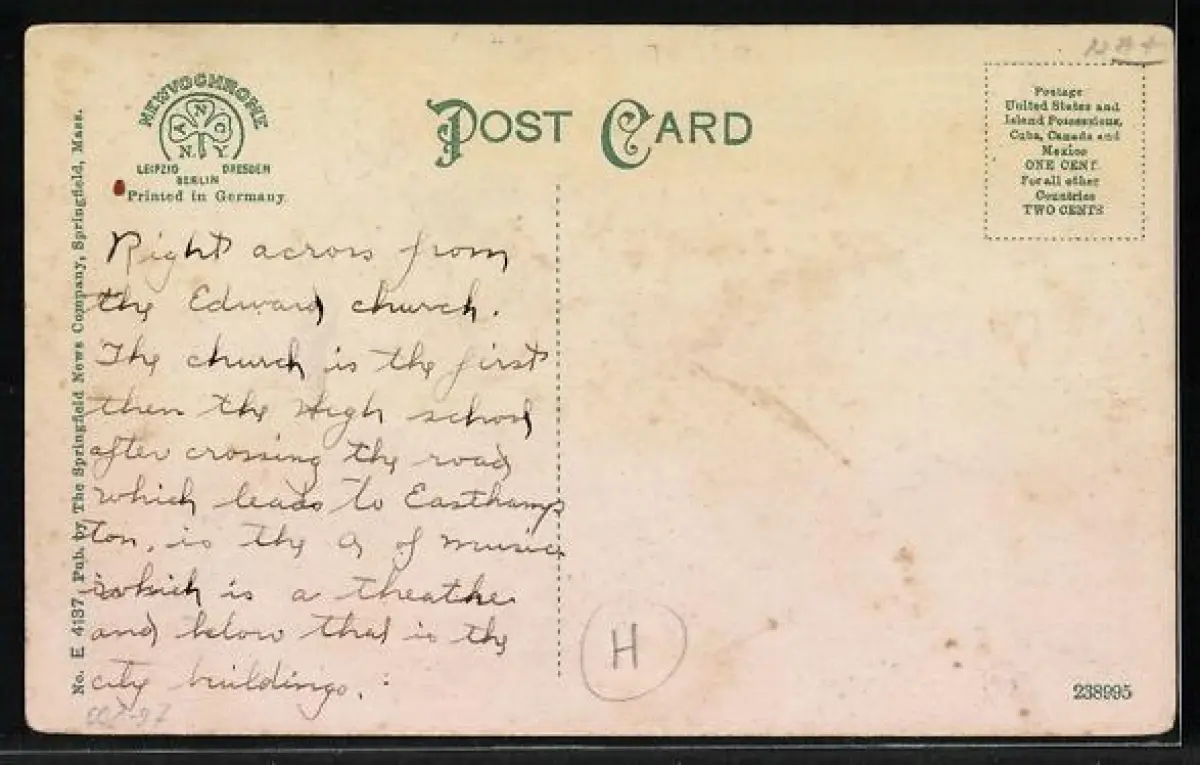 NEWVOCHROME
A N C
N. Y.
LEIPZIG DRESDEN
BERLIN
Printed in Germany
POST CARD
Postage
United States and
Island Possessions,
Cuba, Canada and
Mexico
ONE CENT.
For all other
Countries
TWO CENTS
No. E 4137, Pub. by The Springfield News Company, Springfield, Mass.
Right across from
the Edward church.
The church is the first
then the High school
after crossing the road
which leads to Easthamp
ton, is the a of music
which is a theathe
and below that is the
city buildings.
H
238995